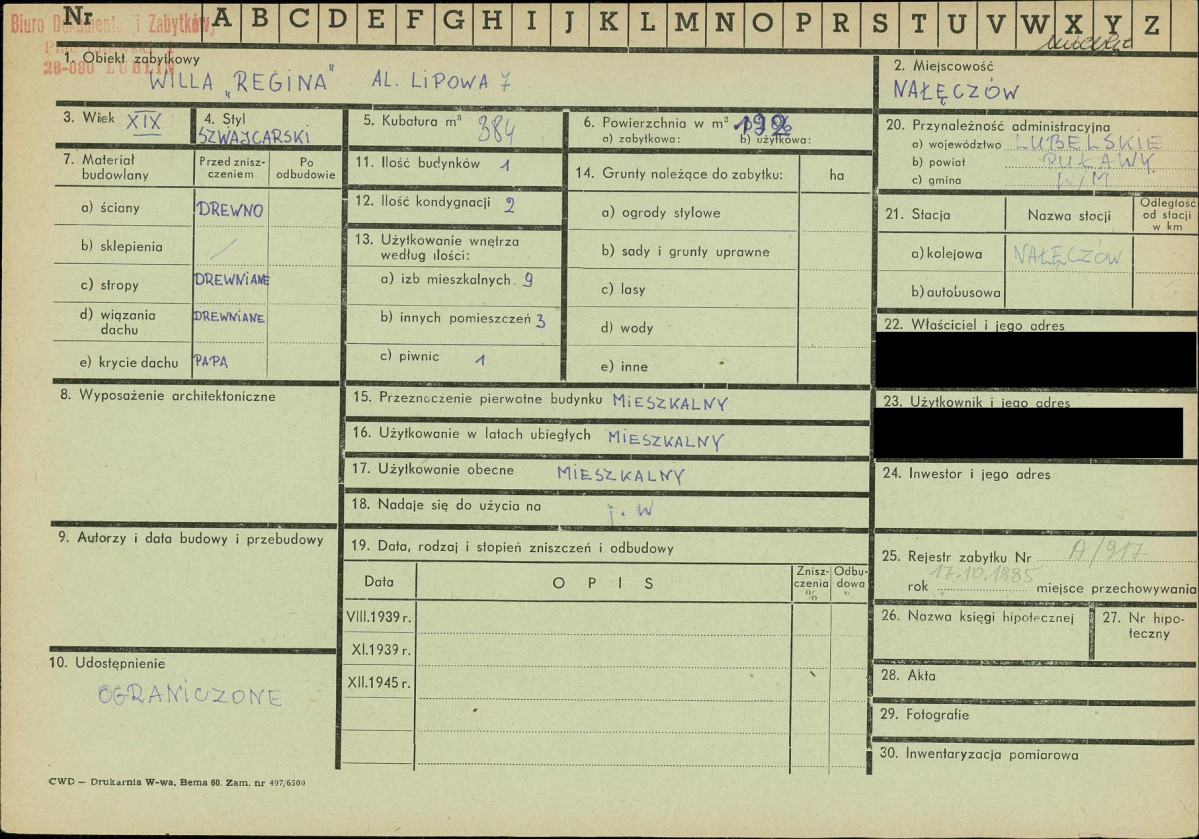 Nr A B C D E F G H I J K L M N O P R S T U V W X Y Z
Biuro Dokumentacji Zabytków
28-080 LUBLIN
1. Obiekt zabytkowy
WILLA „REGINA" AL. LIPOWA 7
2. Miejscowość
NAŁĘCZÓW
3. Wiek XIX
4. Styl
SZWAJCARSKI
5. Kubatura m³ 384
6. Powierzchnia w m²
a) zabytkowa: b) użytkowa:
20. Przynależność administracyjna
a) województwo LUBELSKIE
b) powiat PUŁAWY
c) gmina
7. Materiał budowlany
Przed zniszczeniem
Po odbudowie
a) ściany DREWNO
b) sklepienia /
c) stropy DREWNIANE
d) wiązania dachu DREWNIANE
e) krycie dachu PAPA
11. Ilość budynków 1
12. Ilość kondygnacji 2
13. Użytkowanie wnętrza
według ilości:
a) izb mieszkalnych. 9
b) innych pomieszczeń 3
c) piwnic 1
14. Grunty należące do zabytku: ha
a) ogrody stylowe
b) sady i grunty uprawne
c) lasy
d) wody
e) inne
21. Stacja
Nazwa stacji
Odległość od stacji w km
a) kolejowa NAŁĘCZÓW
b) autobusowa
22. Właściciel i jego adres
23. Użytkownik i jego adres
24. Inwestor i jego adres
8. Wyposażenie architektoniczne
15. Przeznoczenie pierwotne budynku MIESZKALNY
16. Użytkowanie w latach ubiegłych MIESZKALNY
17. Użytkowanie obecne MIESZKALNY
18. Nadaje się do użycia na j. w
9. Autorzy i data budowy i przebudowy
19. Data, rodzaj i stopień zniszczeń i odbudowy
Data OPIS Zniszczenia % Odbudowa
VIII.1939 r.
XI.1939 r.
XII.1945 r.
25. Rejestr zabytku Nr A/917
rok 17.10.1985 miejsce przechowywania
26. Nazwa księgi hipotecznej
27. Nr hipoteczny
10. Udostępnienie
OGRANICZONE
28. Akta
29. Fotografie
30. Inwentaryzacja pomiarowa
CWD — Drukarnia W-wa, Bema 60. Zam. nr 497/6500